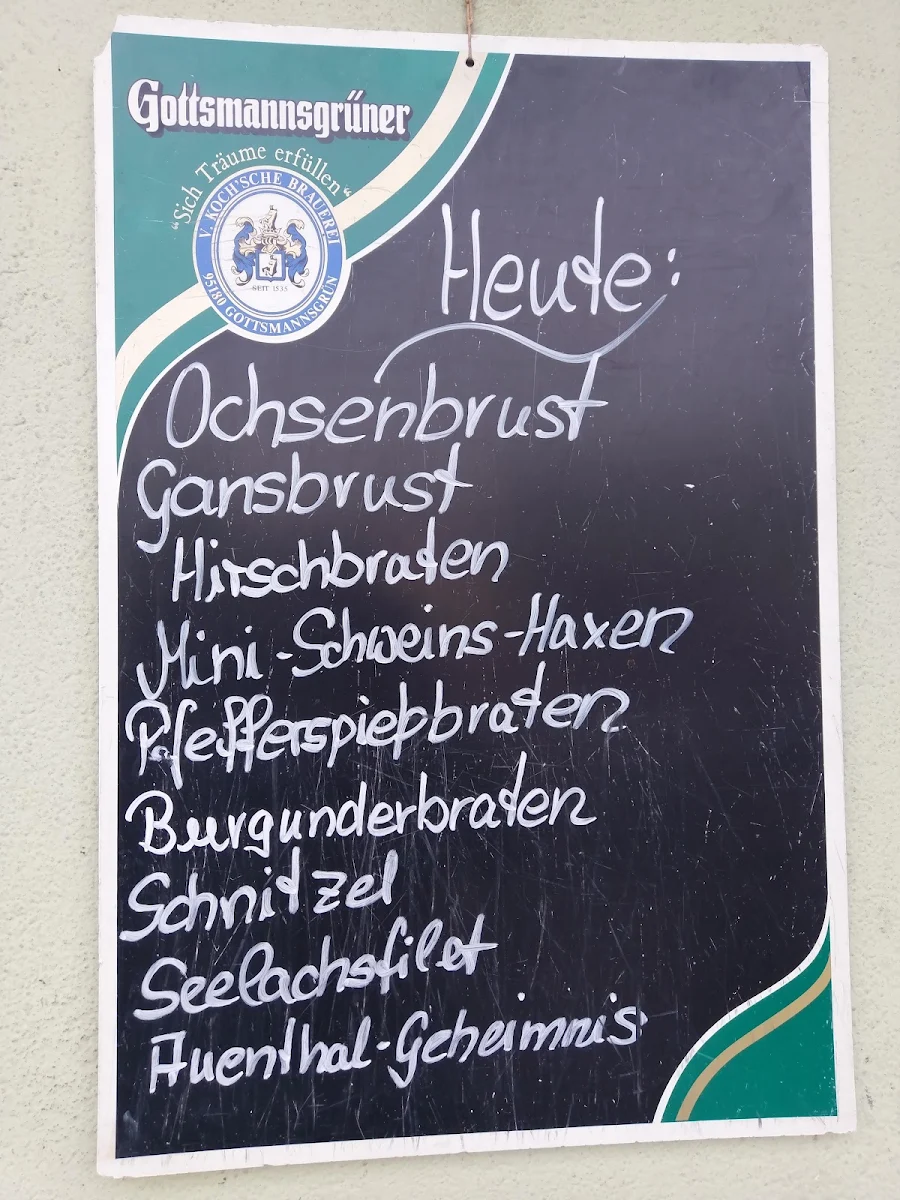 Gottsmannsgrüner
"Sich Träume erfüllen"
V. KOCH'SCHE BRAUEREI
SEIT 1535
95180 GOTTSMANNSGRÜN
Heute:
Ochsenbrust
Gansbrust
Hirschbraten
Mini-Schweins-Haxen
Pfefferspießbraten
Burgunderbraten
Schnitzel
Seelachsfilet
Auenthal-Geheimnis